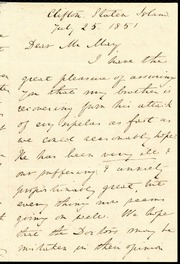 Clifton, Staten Island
July 25. 1851
Dear Mr May
I have the
great pleasure of assuring
you that my brother is
recovering from his attack
of erysipelas as fast as
we could reasonably hope
He has been very ill &
our suffering & anxiety
proportionably great, but
every thing now seems
going on well. We hope
that the Doctors may be
mistaken in their opinion